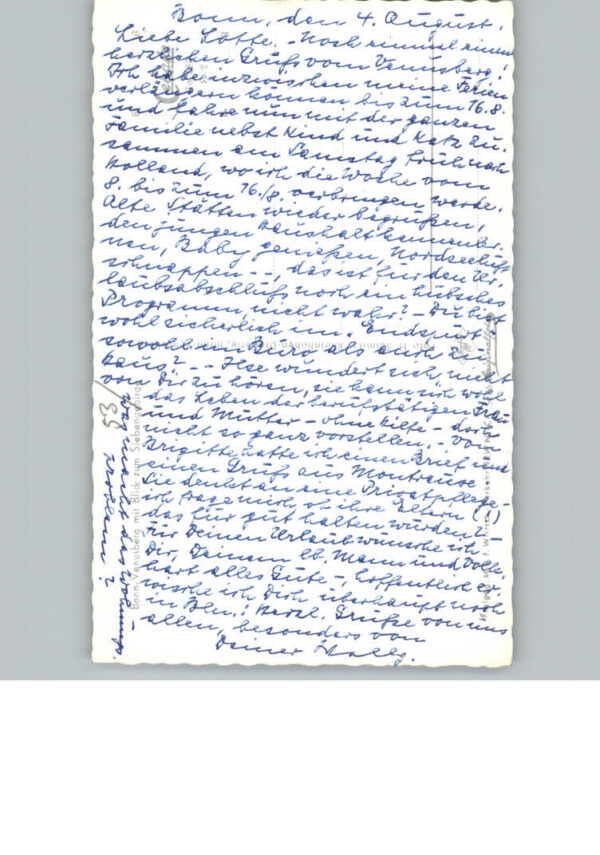 Bonn, den 4. August.
Liebe Lotte. - Noch einmal einen
herzlichen Gruß vom Venusberg!
Ich habe inzwischen meine Ferien
verlängern können bis zum 16.8.
und fahre nun mit der ganzen
Familie nebst Kind und Katz zu-
sammen am Samstag früh nach
Holland, wo ich die Woche vom
8. bis zum 16./8. verbringen werde.
Alte Stätten wieder begrüßen,
den jungen Haushalt kennenler-
nen, Baby genießen, Nordseeluft
schnappen - -, das ist für den Ur-
laubsabschluß noch ein hübsches
Programm, nicht wahr? - Du bist
wohl sicherlich im Endspurt
sowohl im Büro als auch zu
Haus? - - Ilse wundert sich, nicht
von Dir zu hören, sie kann sich wohl
das Leben der berufstätigen Frau
und Mutter - ohne Hilfe - doch
nicht so ganz vorstellen. - Von
Brigitte hatte ich einen Brief und
einen Gruß aus Montreux.
Sie denkt an eine Privatpflege -
ich frage mich, ob ihre Eltern (!)
das für gut halten würden! -
Für Deinen Urlaub wünsche ich
Dir, Deinem lb. Mann und
alles Gute -, hoffentlich er-
wische ich Dich überhaupt noch
in Bln.! Herzl. Grüße von uns
allen, besonders von
Deiner
Was macht das Wohnungs-
problem?
53/
Bonn-Venusberg mit Blick zum Siebengebirge